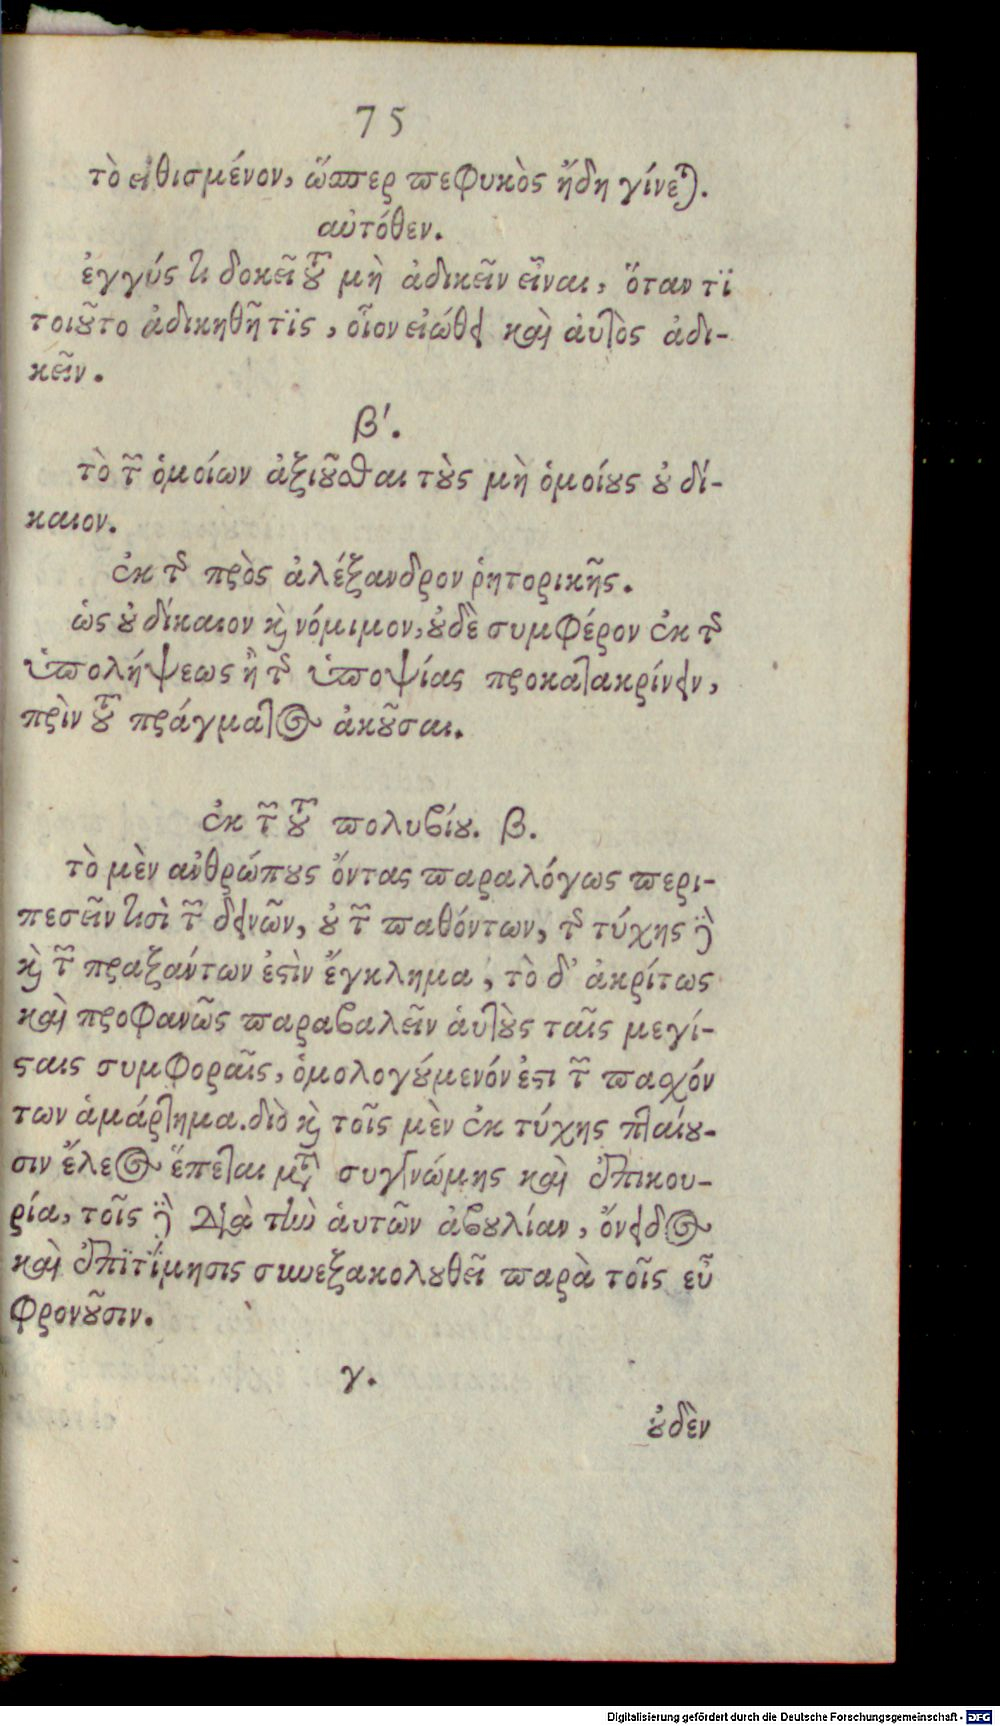 75
τὸ εἰθισμένον, ὥσπερ πεφυκὸς ἤδη γίνεται.
αὐτόθεν.
ἐγγύς τι δοκεῖ τοῦ μὴ ἀδικεῖν εἶναι, ὅταν τὶ
τοιοῦτο ἀδικηθῇ τὶς, οἷον εἰώθει καὶ αὐτὸς ἀδι-
κεῖν.
β'.
τὸ τῶν ὁμοίων ἀξιοῦσθαι τοὺς μὴ ὁμοίους οὐ δί-
καιον.
ἐκ τῆς πρὸς ἀλέξανδρον ῥητορικῆς.
ὡς οὐ δίκαιον καὶ νόμιμον, οὐδὲ συμφέρον ἐκ τῆς
ὑπολήψεως ἢ τῆς ὑποψίας προκατακρίνειν,
πρὶν τοῦ πράγματος ἀκοῦσαι.
ἐκ τῶν τοῦ πολυβίου. β.
τὸ μὲν ἀνθρώπους ὄντας παραλόγως περι-
πεσεῖν τισὶ τῶν δεινῶν, οὐ τῶν παθόντων, τῆς τύχης δὲ
καὶ τῶν πραξάντων ἐστὶν ἔγκλημα, τὸ δ' ἀκρίτως
καὶ προφανῶς παραβαλεῖν ἁυτοὺς ταῖς μεγί-
σταις συμφοραῖς, ὁμολογούμενόν ἐστι τῶν πασχόν
των ἁμάρτημα. διὸ καὶ τοῖς μὲν ἐκ τύχης πταίου-
σιν ἔλεος ἕπεται μετὰ συγγνώμης καὶ ἐπικου-
ρία, τοῖς δὲ διὰ τὴν ἁυτῶν ἀβουλίαν, ὄνειδος
καὶ ἐπιτίμησις συνεξακολουθεῖ παρὰ τοῖς εὖ
φρονοῦσιν.
γ.
οὐδὲν
Digitalisierung gefördert durch die Deutsche Forschungsgemeinschaft - DFG